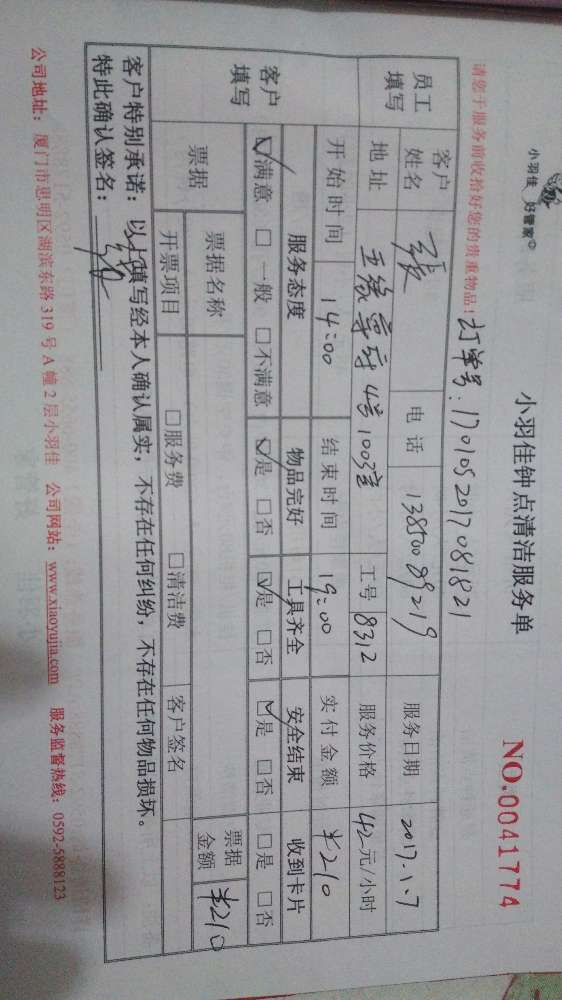 小羽佳 好管家
小羽佳钟点清洁服务单
NO.0041774
请您于服务前收拾好您的贵重物品！
订单号：1701052017081821
员工填写 客户姓名 張 电话 13850089219 服务日期 2017.1.7
地址 4号1003室 工号 8312 服务价格 42元/小时
开始时间 14:00 结束时间 19:00 实付金额 ¥210
客户填写 服务态度 物品完好 工具齐全 安全结束 收到卡片
☑满意 □一般 □不满意 ☑是 □否 ☑是 □否 ☑是 □否 □是 □否
票据 票据名称 票据金额 ¥210
开票项目 □服务费 □清洁费 客户签名
客户特别承诺：以上填写经本人确认属实，不存在任何纠纷，不存在任何物品损坏。
特此确认签名：
公司地址：厦门市思明区湖滨东路319号A幢2层小羽佳 公司网站：www.xiaoyujia.com 服务监督热线：0592-5888123